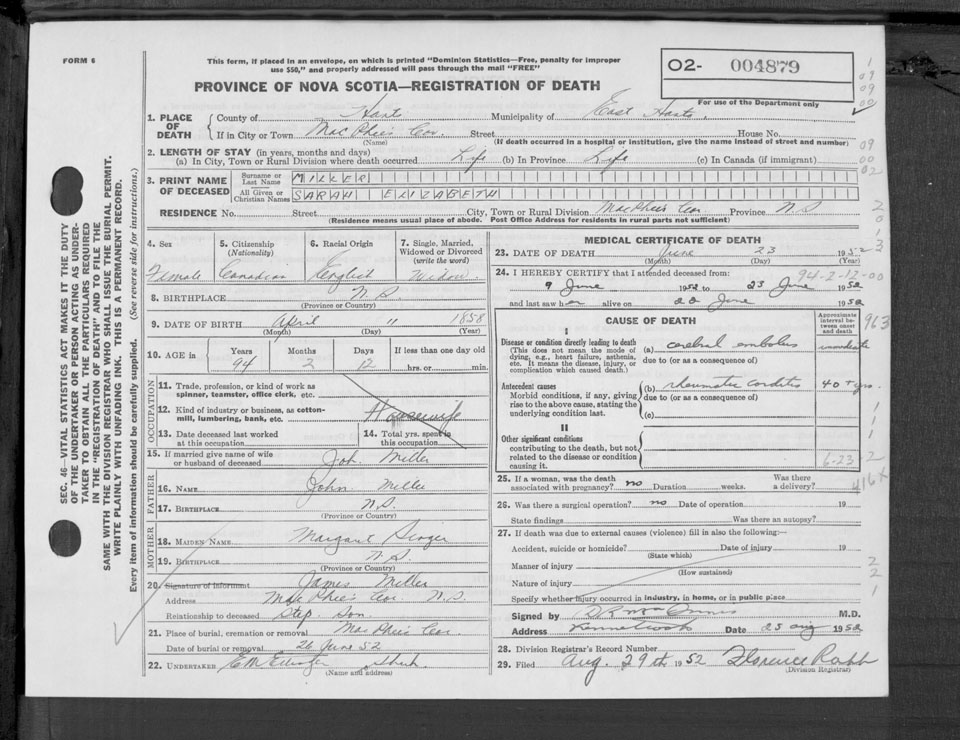 FORM 6
This form, if placed in an envelope, on which is printed "Dominion Statistics—Free, penalty for improper
use $50," and properly addressed will pass through the mail "FREE"
PROVINCE OF NOVA SCOTIA—REGISTRATION OF DEATH
O2- 004879
For use of the Department only
SEC. 46—VITAL STATISTICS ACT MAKES IT THE DUTY
OF THE UNDERTAKER OR PERSON ACTING AS UNDER-
TAKER TO OBTAIN ALL THE PARTICULARS REQUIRED
IN THE "REGISTRATION OF DEATH" AND TO FILE THE
SAME WITH THE DIVISION REGISTRAR WHO SHALL ISSUE THE BURIAL PERMIT.
WRITE PLAINLY WITH UNFADING INK. THIS IS A PERMANENT RECORD.
Every item of information should be carefully supplied. (See reverse side for instructions.)
1. PLACE OF DEATH
County of Hants Municipality of East Hants
If in City or Town MacPhee's Cor. Street House No.
(Name) (If death occurred in a hospital or institution, give the name instead of street and number)
2. LENGTH OF STAY (in years, months and days)
(a) In City, Town or Rural Division where death occurred Life (b) In Province Life (c) In Canada (if immigrant)
3. PRINT NAME OF DECEASED
Surname or Last Name MILLER
All Given or Christian Names SARAH ELIZABETH
RESIDENCE No. Street City, Town or Rural Division MacPhee's Cor Province N.S
(Residence means usual place of abode. Post Office Address for residents in rural parts not sufficient)
4. Sex Female
5. Citizenship (Nationality) Canadian
6. Racial Origin English
7. Single, Married, Widowed or Divorced (write the word) Widow
8. BIRTHPLACE N.S.
(Province or Country)
9. DATE OF BIRTH April 11 1858
(Month) (Day) (Year)
10. AGE in Years 94 Months 2 Days 12 If less than one day old hrs. or min.
OCCUPATION
11. Trade, profession, or kind of work as
spinner, teamster, office clerk, etc.
12. Kind of industry or business, as cotton-
mill, lumbering, bank, etc. Housewife
13. Date deceased last worked
at this occupation
14. Total yrs. spent in
this occupation
15. If married give name of wife
or husband of deceased Joh. Miller
FATHER
16. NAME John Miller
17. BIRTHPLACE N.S.
(Province or Country)
MOTHER
18. MAIDEN NAME Margaret
19. BIRTHPLACE N.S
(Province or Country)
20. Signature of informant James Miller
Address MacPhee's Cor N.S.
Relationship to deceased Step Son
21. Place of burial, cremation or removal MacPhee's Cor.
Date of burial or removal 26 June 52
22. UNDERTAKER
(Name and address)
MEDICAL CERTIFICATE OF DEATH
23. DATE OF DEATH June 23 1952
(Month) (Day) (Year)
24. I HEREBY CERTIFY that I attended deceased from:
94-2-12-00
9 June 1952 to 23 June 1952
and last saw her alive on 22 June 1952
CAUSE OF DEATH
Approximate interval between onset and death
963
I
Disease or condition directly leading to death
(This does not mean the mode of dying, e.g., heart failure, asthenia, etc. It means the disease, injury, or complication which caused death.)
(a) cerebral embolus immediate
due to (or as a consequence of)
Antecedent causes
Morbid conditions, if any, giving rise to the above cause, stating the underlying condition last.
(b) rheumatic carditis 40 + yrs.
due to (or as a consequence of)
(c)
II
Other significant conditions
contributing to the death, but not related to the disease or condition causing it.
6-23
416X
25. If a woman, was the death
associated with pregnancy? no Duration weeks. Was there a delivery?
26. Was there a surgical operation? no Date of operation 19
State findings Was there an autopsy?
27. If death was due to external causes (violence) fill in also the following:—
Accident, suicide or homicide? Date of injury 19
(State which)
Manner of injury
(How sustained)
Nature of injury
Specify whether injury occurred in industry, in home, or in public place
Signed by M.D.
Address Kennetcook Date 25 aug 1952
28. Division Registrar's Record Number
29. Filed Aug. 29th 1952 Florence Rabb
(Division Registrar)